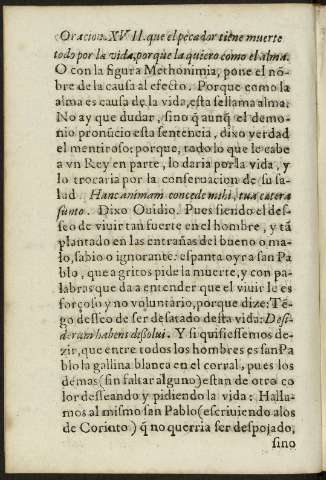 Oracion. XVII. que el pecador tiene muerte
todo por la vida, porque la quiero como el alma.
O con la figura Methonimia, pone el nõ-
bre de la causa al efecto. Porque como la
alma es causa de la vida, esta se llama alma.
No ay que dudar, sino q̃ aunq̃ el demo-
nio pronũcio esta sentencia, dixo verdad
el mentiroso: porque, todo lo que le cabe
a vn Rey en parte, lo daria por la vida, y
lo trocaria por la conseruacion de su sa-
lud. Hanc animam concede mihi, tua cætera
sunto. Dixo Ouidio. Pues siendo el des-
seo de viuir tan fuerte en el hombre, y tã
plantado en las entrañas del bueno o ma-
lo, sabio o ignorante: espanta oyr a san Pa
blo, que a gritos pide la muerte, y con pa-
labras que da a entender que el viuir le es
forçoso y no voluntario, porque dize: Tẽ-
go desseo de ser desatado desta vida: Desi-
derium habens dissolui. Y si quisiessemos de-
zir, que entre todos los hombres es san Pa
blo la gallina blanca en el corral, pues los
demas (sin faltar alguno) estan de otro co
lor desseando y pidiendo la vida: Halla-
mos al mismo san Pablo (escriuiendo a los
de Corinto) q̃ no querria ser despojado,
sino